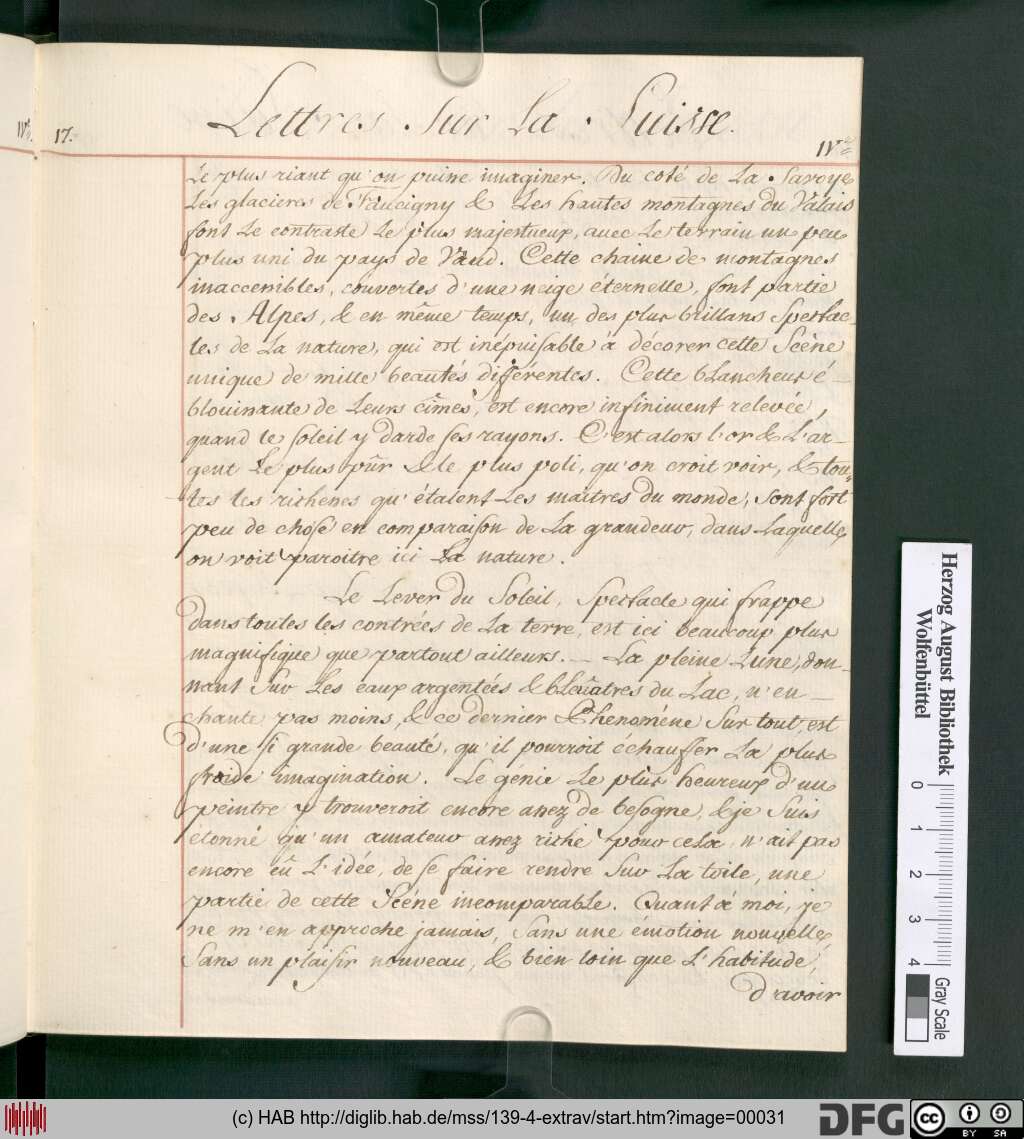 Lettres Sur La Suisse.
17.
IV.e
Le plus riant qu'on puisse imaginer. Du coté de La Savoye
Les glacieres de Faucigny & Les hautes montagnes du Valais
font Le contraste Le plus majestueux, avec Le terrain un peu
plus uni du pays de Vaud. Cette chaine de montagnes
inaccessibles, couvertes d'une neige éternelle, font partie
des Alpes, & en même temps, un des plus brillans Spectac
les de La nature, qui est inépuisable à décorer cette Scène
unique de mille beautés différentes. Cette bLancheur é-
blouissante de Leurs cîmes, est encore infiniment relevée,
quand le soleil y darde ses rayons. C'est alors l'or & L'ar-
gent Le plus pûr & le plus poli, qu'on croit voir, & tou-
tes les richesses qu'étalent Les maitres du monde, sont fort
peu de chose en comparaison de La grandeur, dans Laquelle
on voit paroitre ici La nature.
Le Lever du Soleil, Spectacle qui frappe
dans toutes les contrées de La terre, est ici beaucoup plus
magnifique que partout ailleurs. — La pleine Lune, don-
nant Sur Les eaux argentées & bLeuatres du Lac, n'en-
chante pas moins, & ce dernier Phenoméne Sur tout, est
d'une si grande beauté, qu'il pourroit échauffer La plus
froide imagination. Le génie Le plus heureux d'un
peintre y trouveroit encore assez de besogne, & je Suis
etonné qu'un amateur assez riche pour ceLa, n'ait pas
encore eû L'idée, de se faire rendre Sur La toile, une
partie de cette Scéne incomparable. Quant à moi, je
ne m'en approche jamais, Sans une émotion nouvelle,
Sans un plaisir nouveau, & bien loin que L'habitude,
d'avoir
Herzog August Bibliothek
Wolfenbüttel
0 1 2 3 4
Gray Scale
(c) HAB http://diglib.hab.de/mss/139-4-extrav/start.htm?image=00031
DFG
cc BY SA